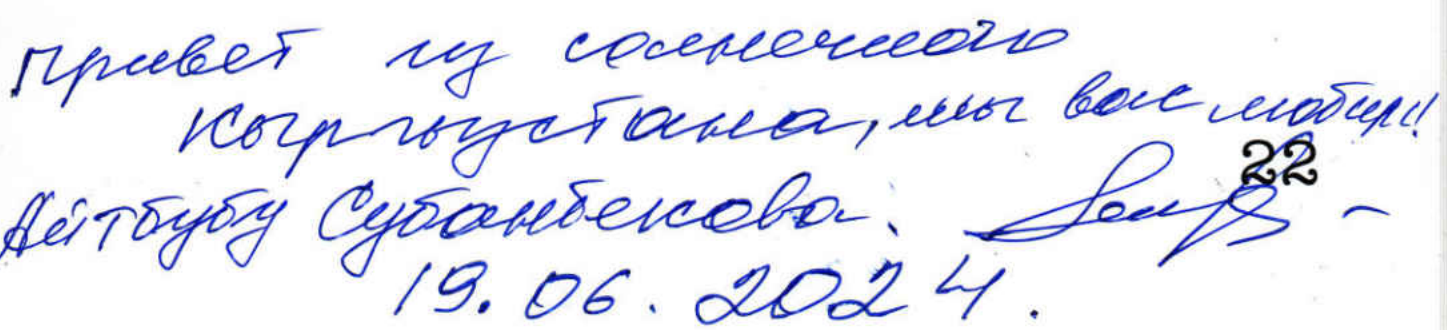 Привет из солнечного
Кыргызстана, мы вас любим!
22
Айтбубу Субанбекова.
19.06.2024.